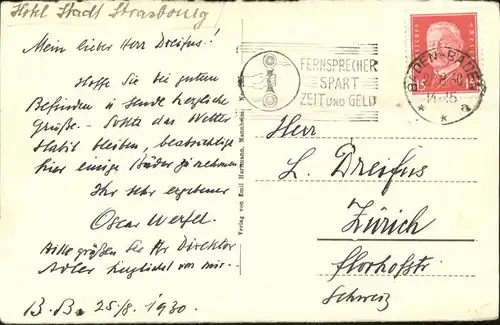 Hotel Stadt Strasbourg
Mein lieber Herr Dreifus!
Hoffe Sie bei gutem
Befinden u sende herzliche
Grüße.- Sollte das Wetter
stabil bleiben, beabsichtige
hier einige Bäder zu nehmen
Ihr sehr ergebener
Oscar
Bitte grüßen Sie Hr Direktor
Adler herzlichst von mir.-
B.B. 25/8. 1930
Verlag von Emil Hartmann, Mannheim
FERNSPRECHER
SPART
ZEIT UND GELD
BADEN-BADEN
14-15
* * a
15
Herr
L. Dreifus
Zürich
Florhofstr
Schweiz